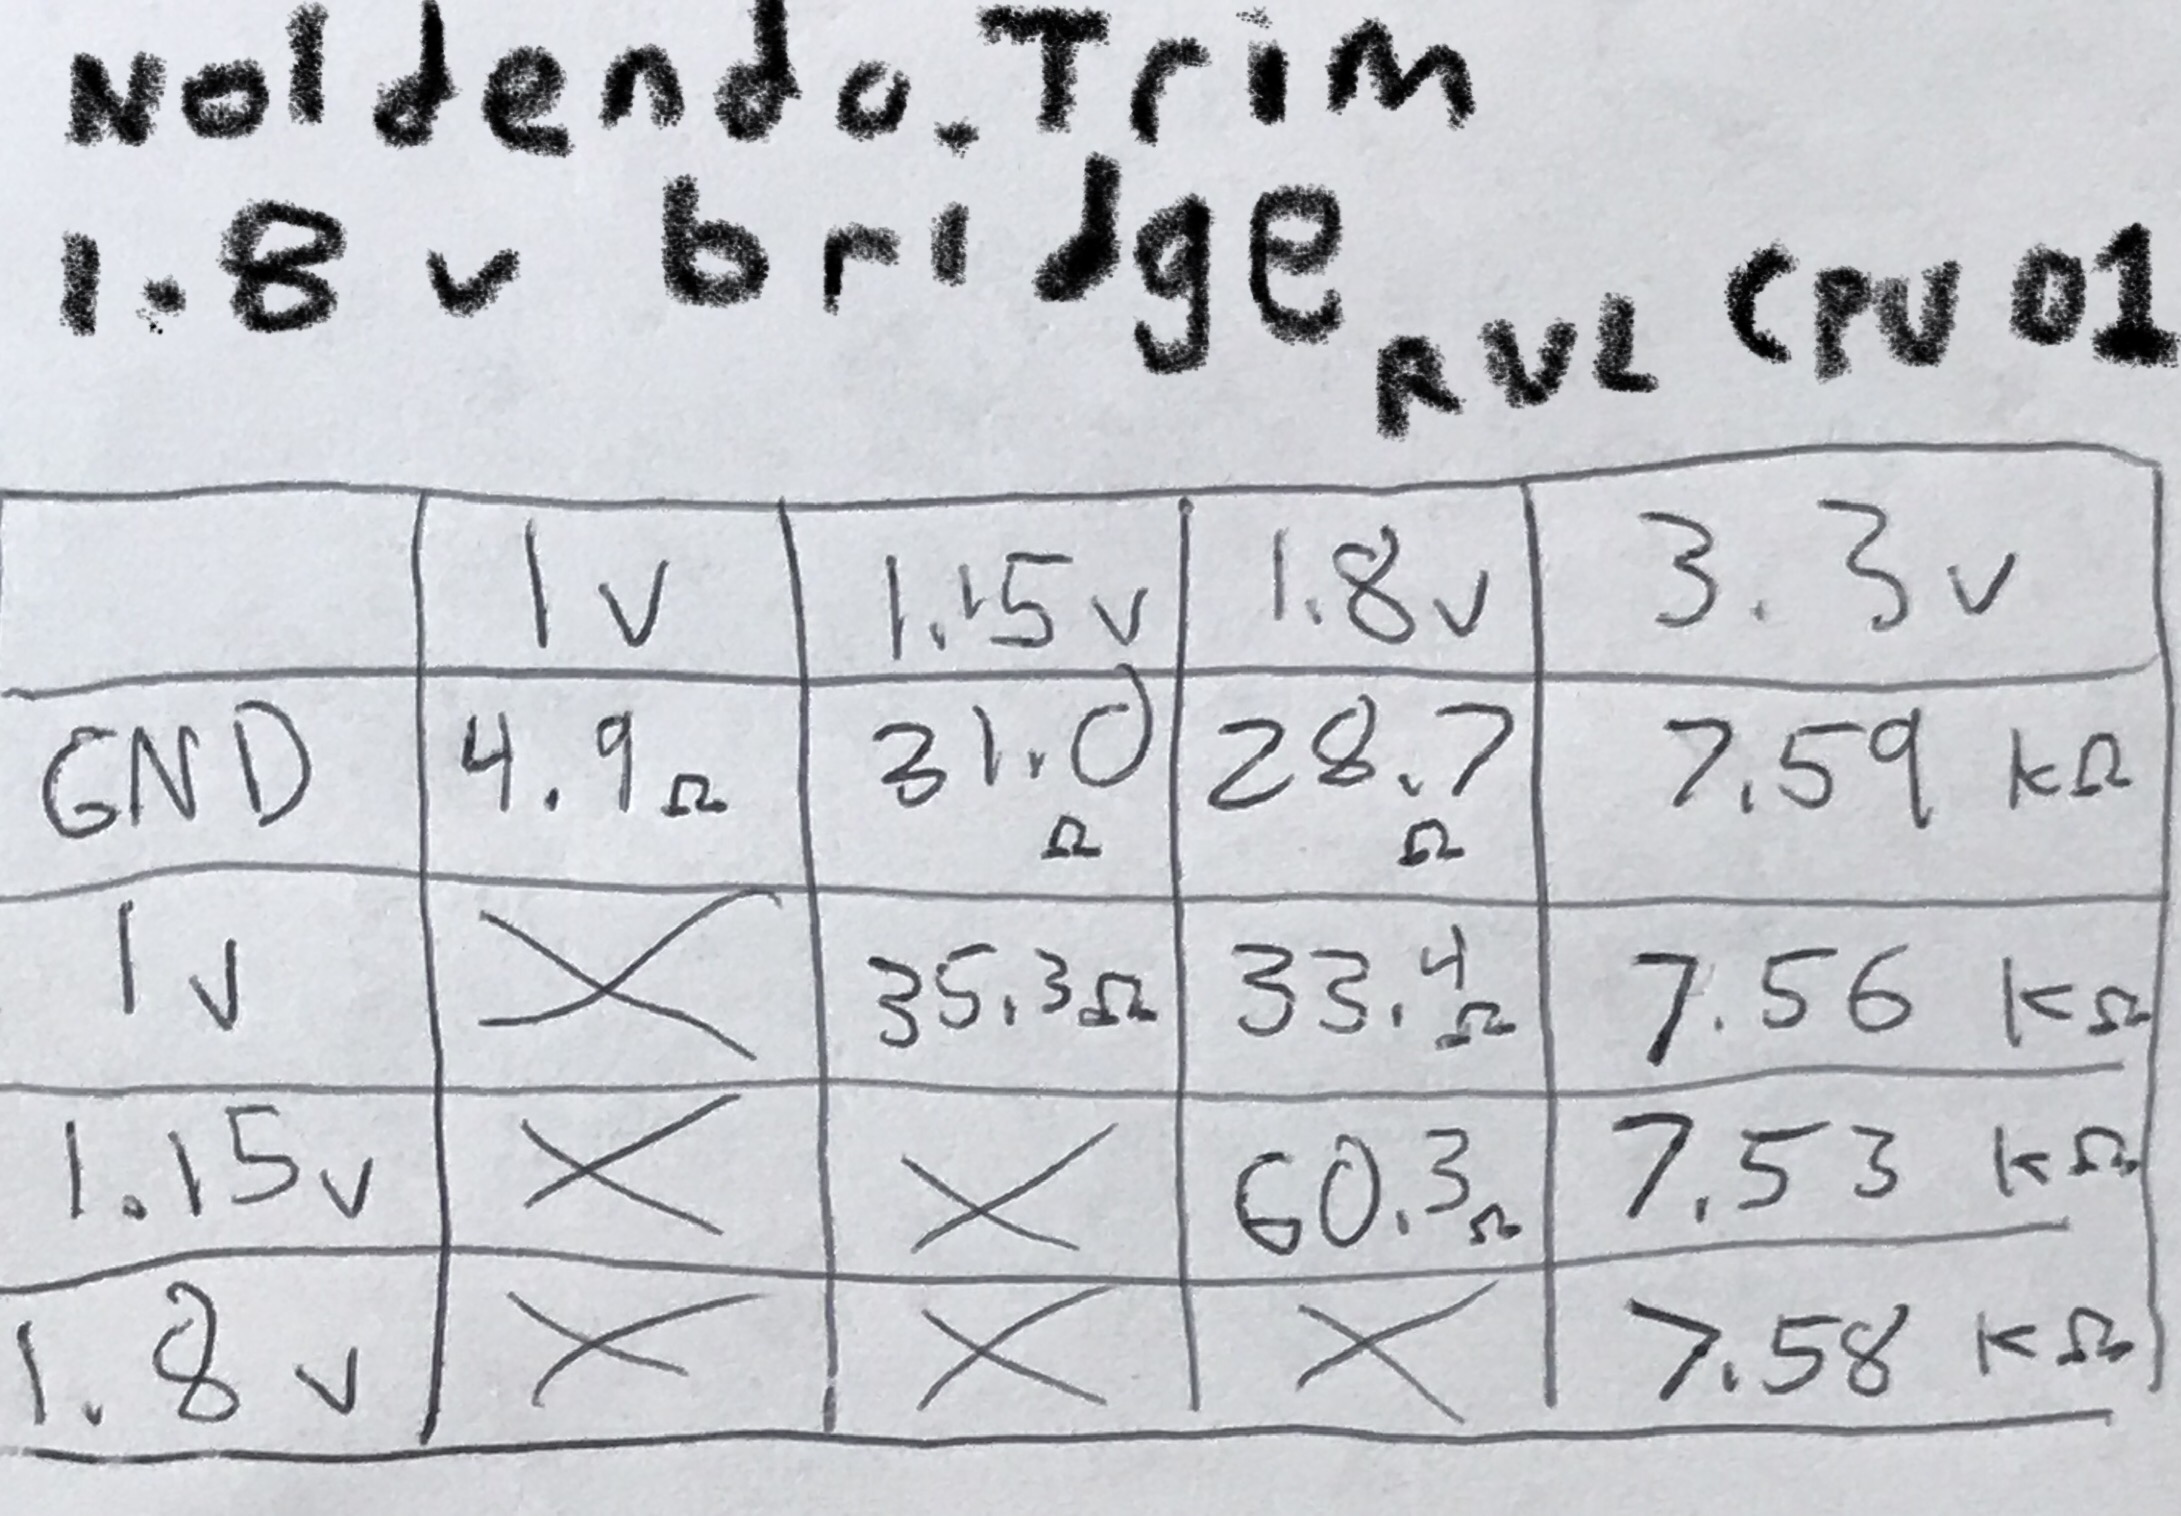 Noldendo.Trim
1.8 v bridge
RVL CPU 01
1 v 1.15 v 1.8 v 3.3 v
GND 4.9 Ω 31.0 Ω 28.7 Ω 7.59 kΩ
1 v X 35.3 Ω 33.4 Ω 7.56 kΩ
1.15 v X X 60.3 Ω 7.53 kΩ
1.8 v X X X 7.58 kΩ